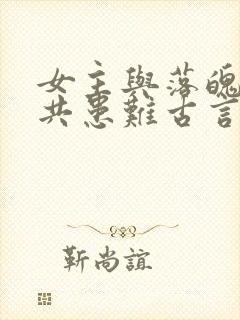 女主與落魄
共患難古言
靳尚誼